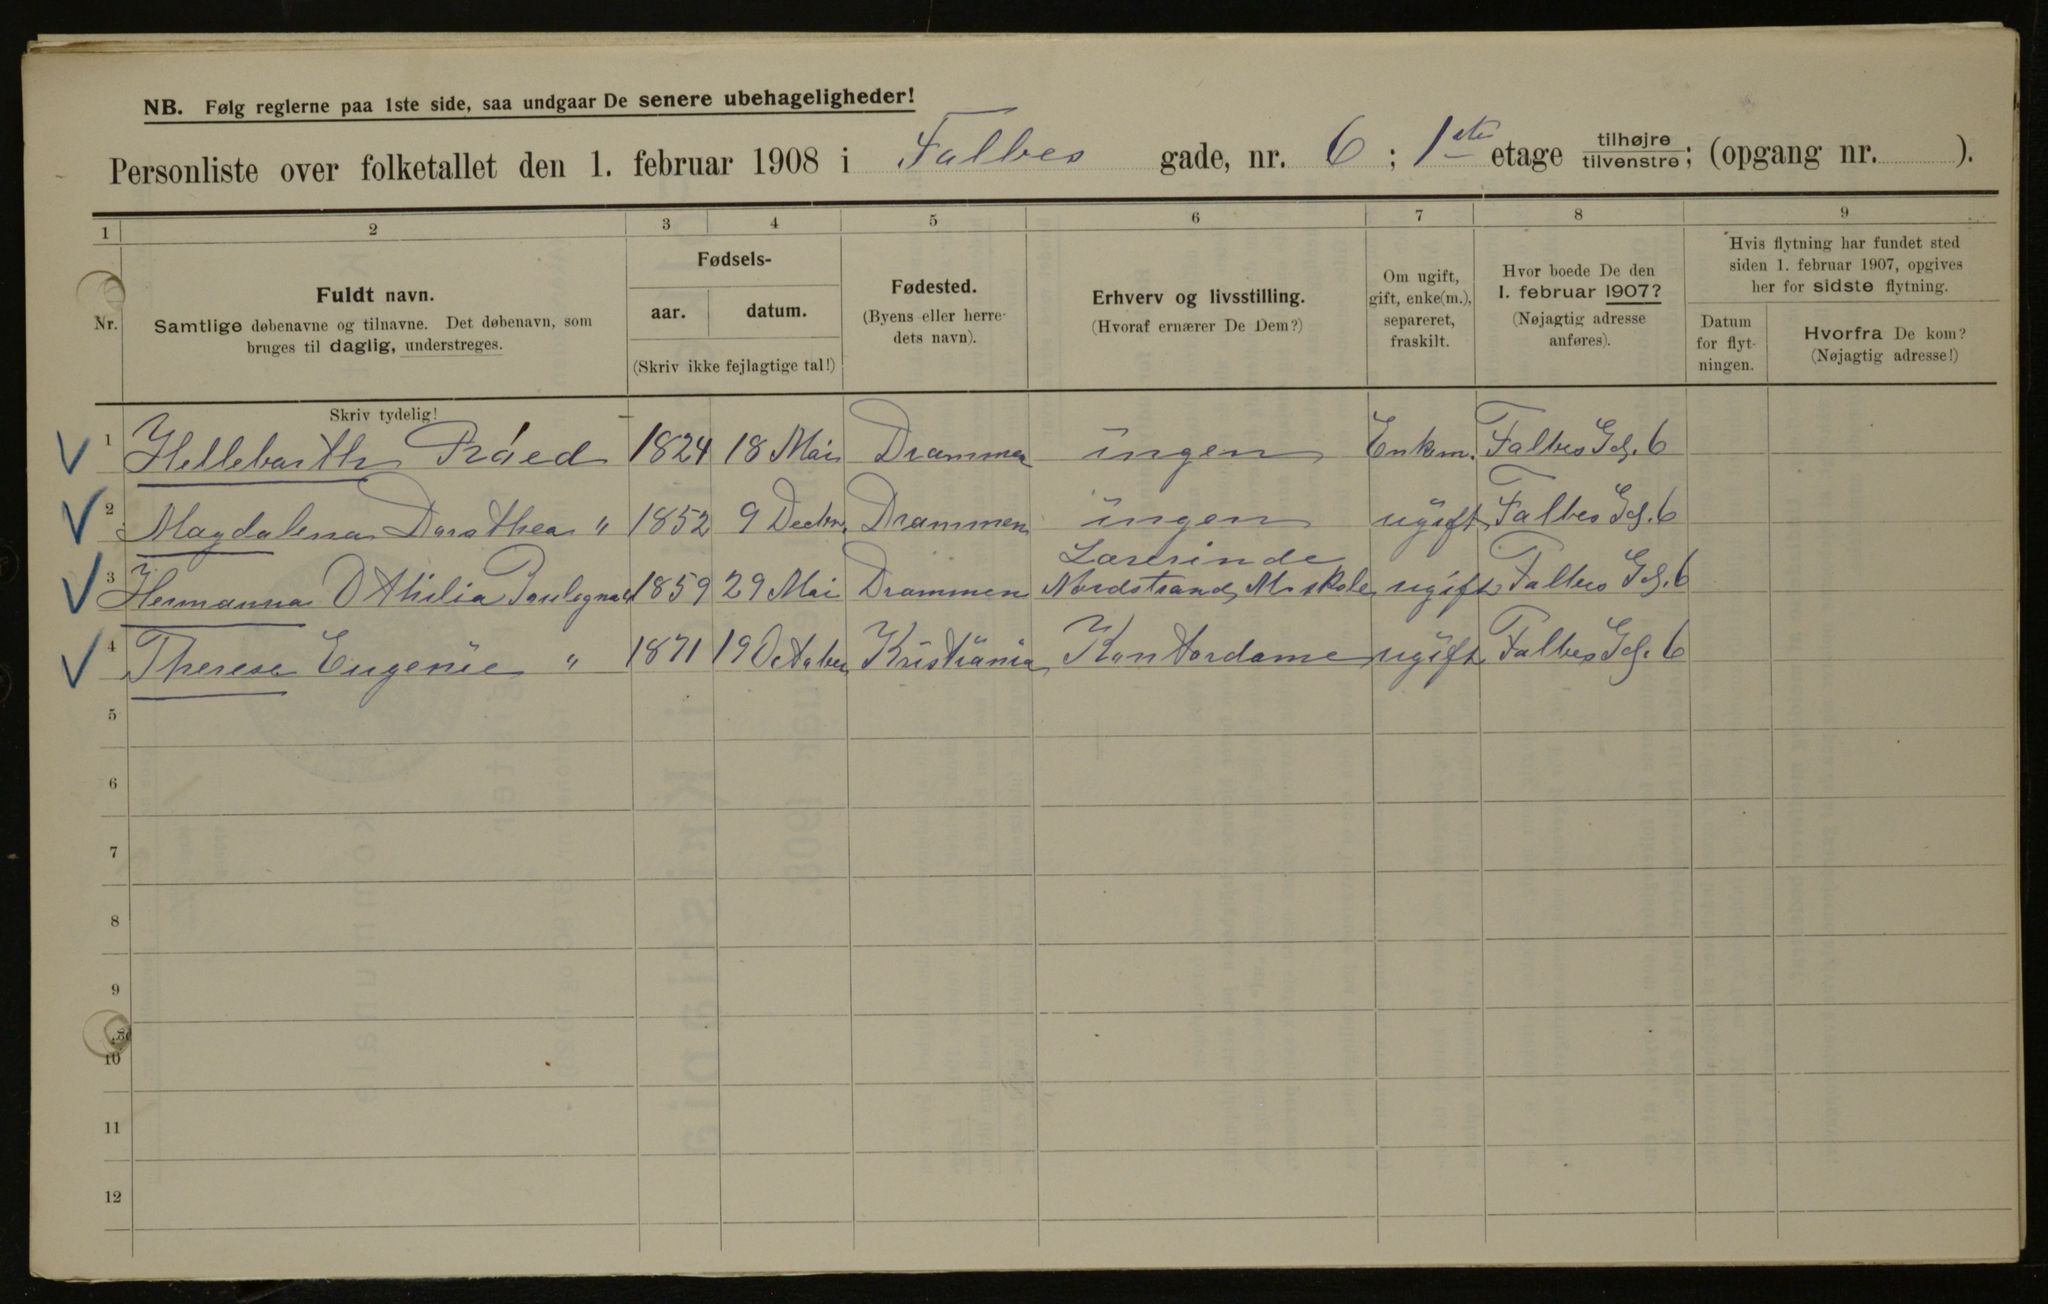 NB. Følg reglerne paa 1ste side, saa undgaar De senere ubehageligheder!
Personliste over folketallet den 1. februar 1908 i Falbes gade, nr. 6 ; 1ste etage tilhøjre tilvenstre; (opgang nr. ).
1 2 3 4 5 6 7 8 9
Nr.
Fuldt navn.
Samtlige døbenavne og tilnavne. Det døbenavn, som
bruges til daglig, understreges.
Fødsels-
aar. datum.
(Skriv ikke fejlagtige tal!)
Fødested.
(Byens eller herre-
dets navn).
Erhverv og livsstilling.
(Hvoraf ernærer De Dem?)
Om ugift,
gift, enke(m.),
separeret,
fraskilt.
Hvor boede De den
1. februar 1907?
(Nøjagtig adresse
anføres).
Hvis flytning har fundet sted
siden 1. februar 1907, opgives
her for sidste flytning.
Datum
for flyt-
ningen.
Hvorfra De kom?
(Nøjagtig adresse!)
Skriv tydelig!
1 Hellebarth 1824 18 Mai Drammen ingen Enkem. Falbes Gd. 6
2 Magdalena Dorothea " 1852 9 Decbr Drammen ingen ugift Falbes Gd. 6
Lærerinde
3 Hermanna Othilia 1859 29 Mai Drammen Nordstrand M skole ugift Falbes Gd. 6
4 Therese Eugenie " 1871 19 October Kristiania Kontordame ugift Falbes Gd. 6
5
6
7
8
9
10
11
12